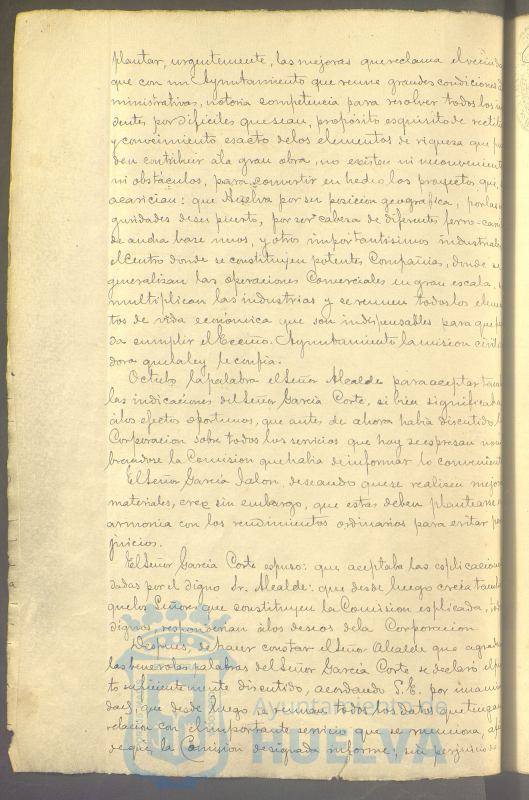 plantar, urgentemente, las mejoras que reclama el vecinda
que con un Ayuntamiento que reune grandes condiciones ad
ministrativas, notoria competencia para resolver todos los in
dentes por dificiles que sean, propósito esquisito de rectitu
y conocimiento esacto de los elementos de riqueza que pue
den contribuir á la gran obra, no existen ni inconveniente
ni obstáculos, para convertir en hechos los proyectos que
acarician: que Huelva por su posicion geográfica, por las
guridades de su puerto, por ser cabeza de diferentes ferro-carri
de ancha base unos, y otros importantisimos industriales
el Centro donde se constituyen potentes Compañias, donde se
generalizan las operaciones Comerciales en gran escala,
multiplican las industrias y se reunen todos los elemen
tos de vida económica que son indispensables para que pue
da cumplir el Excmo. Ayuntamiento la mision civiliza
dora que la ley le confia.
la palabra el Señor Alcalde para aceptar
las indicaciones del Señor Garcia Corte, si bien significando
á los efectos oportunos, que antes de ahora habia discutido la
Corporacion sobre todos los servicios que hoy se espresan nom
brandose la Comision que habia de informar lo conveniente
El Señor Garcia Jalon, deseando que se realizen mejoras
materiales, cree sin embargo, que estas deben plantearse en
armonia con los rendimientos ordinarios para evitar per
juicios.
El Señor Garcia Corte espuso: que aceptaba las esplicaciones
dadas por el digno Sr. Alcalde: que desde luego creia
que los Señores que constituyen la Comision esplicada,
dignos, responderian á los deseos de la Corporacion
Despues, de hacer constar el Señor Alcalde que agradecia
las benevolas palabras del Señor Garcia Corte se declaró el pun
to suficientemente discutido, acordando S.E. por unanimi
dad, que desde luego se reunan todos los datos que tengan
relacion con el importante servicio que se menciona, á fin
de que la Comision designada informe; sin perjuicio de
Ayuntamiento de
HUELVA